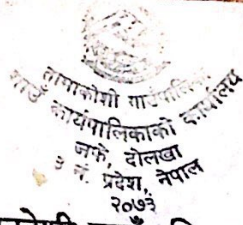 तामाकोशी गाउँपालिका
गाउँ कार्यपालिकाको कार्यालय
जफे, दोलखा
३ नं. प्रदेश, नेपाल
२०७३